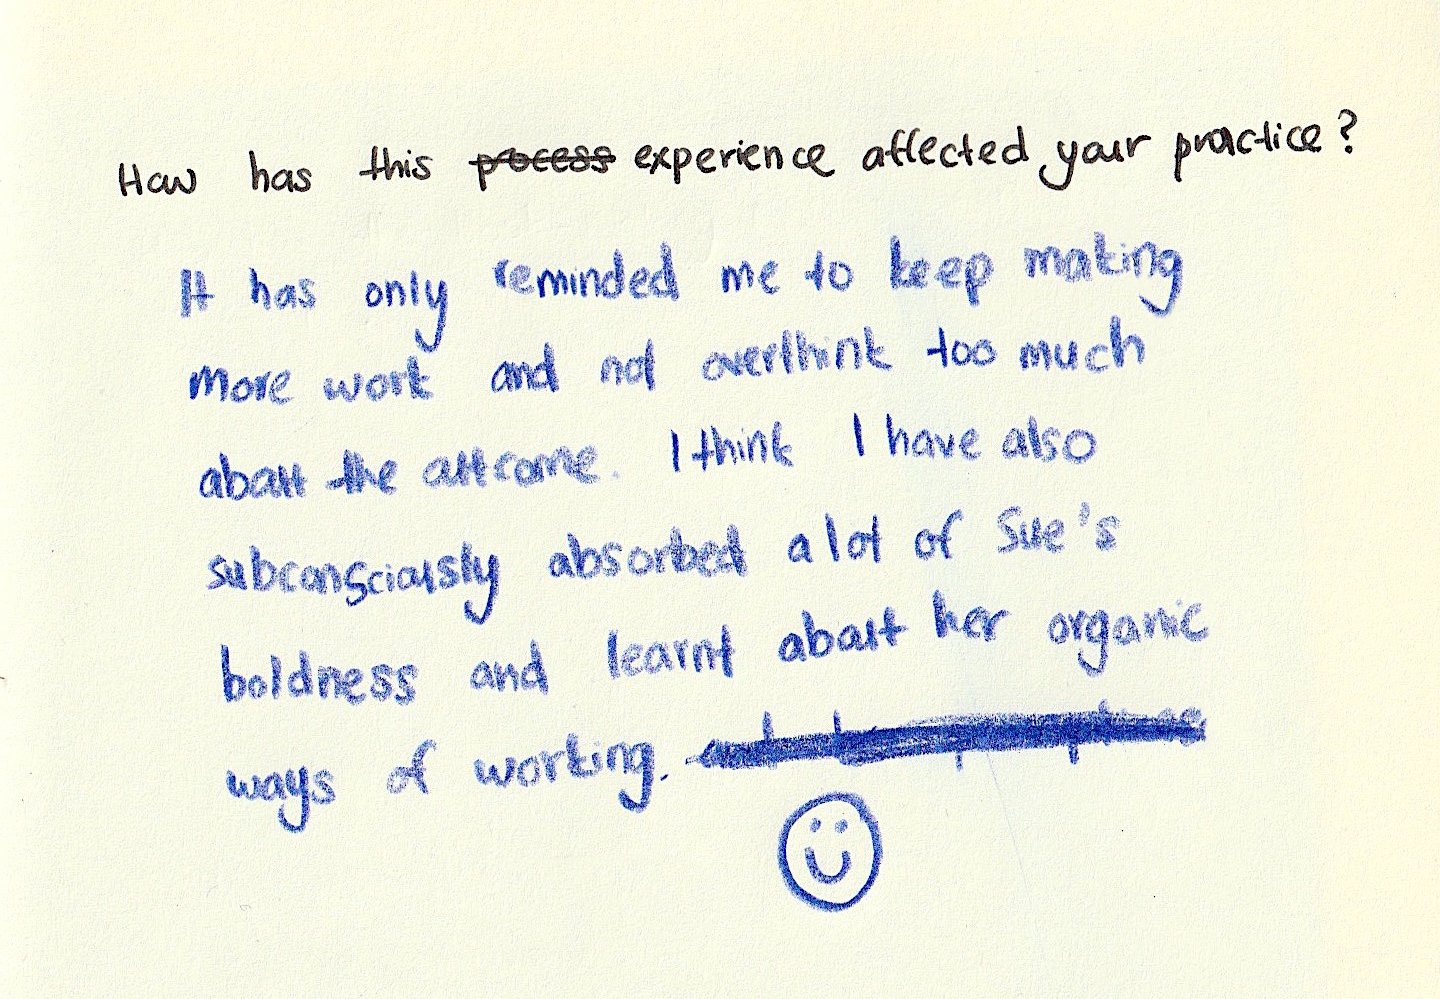 How has this process experience affected your practice?
It has only reminded me to keep making
more work and not overthink too much
about the outcome. I think I have also
subconsciously absorbed a lot of Sue's
boldness and learnt about her organic
ways of working.